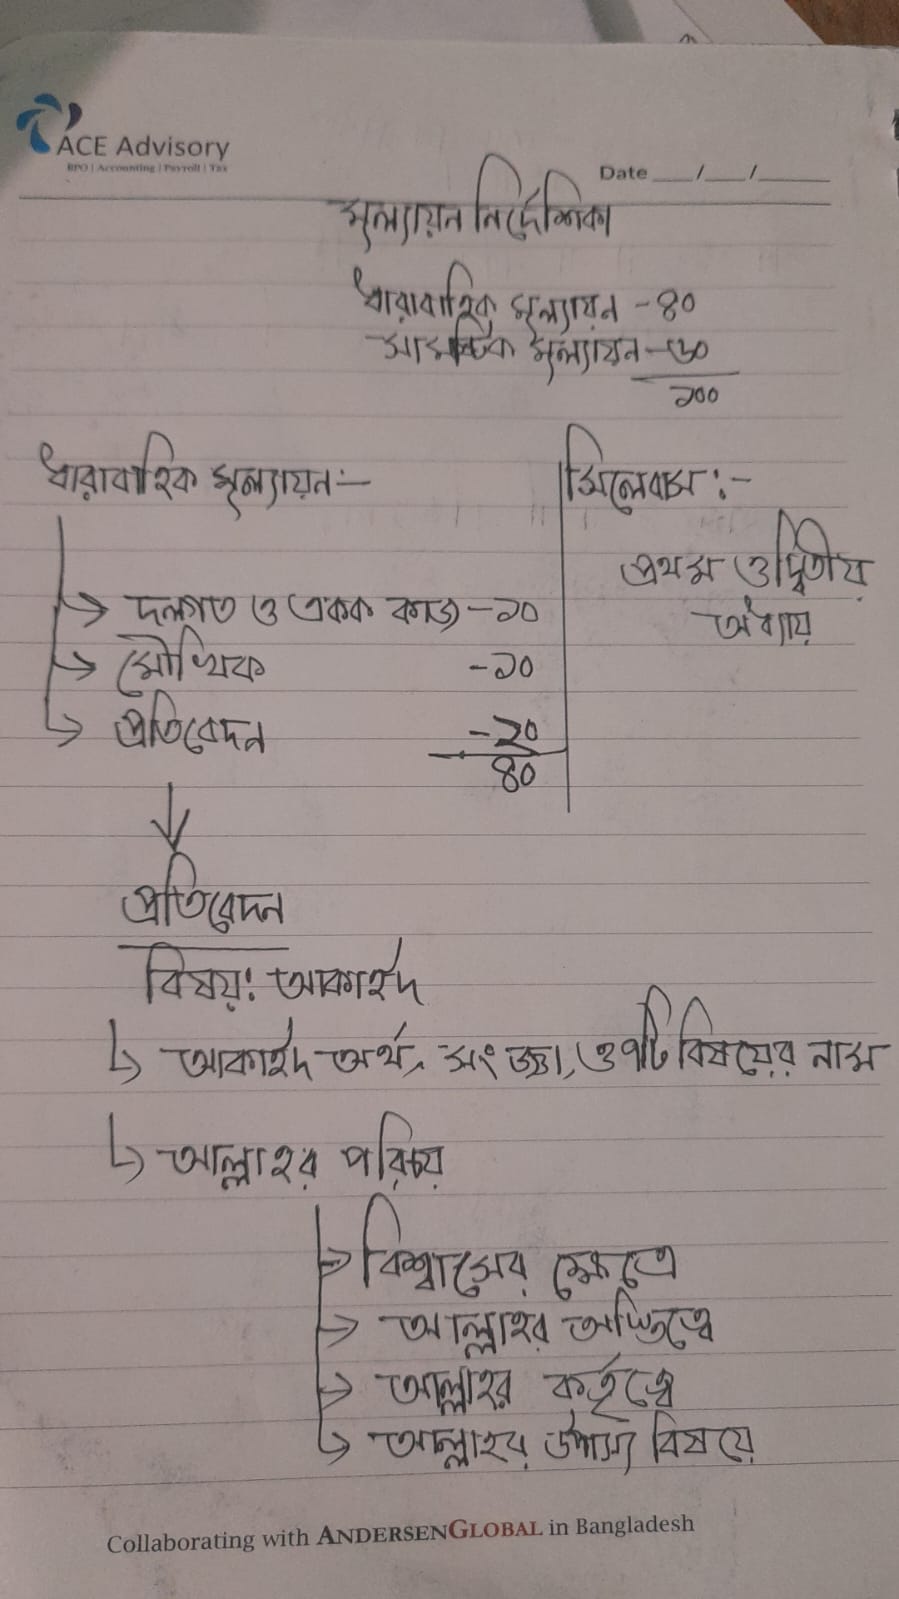 ACE Advisory
BPO | Accounting | Payroll | Tax
Date __/__/____
মূল্যায়ন নির্দেশিকা
ধারাবাহিক মূল্যায়ন - ৪০
সামষ্টিক মূল্যায়ন - ৬০
১০০
ধারাবাহিক মূল্যায়ন :-
দলগত ও একক কাজ - ১০
মৌখিক - ১০
প্রতিবেদন - ২০
৪০
সিলেবাস :-
প্রথম ও দ্বিতীয়
অধ্যায়
প্রতিবেদন
বিষয়: আকাইদ
আকাইদ অর্থ, সংজ্ঞা, ও ৭টি বিষয়ের নাম
আল্লাহর পরিচয়
বিশ্বাসের ক্ষেত্রে
আল্লাহর অস্তিত্বে
আল্লাহর কর্তৃত্বে
আল্লাহর উপাস্য বিষয়ে
Collaborating with ANDERSENGLOBAL in Bangladesh